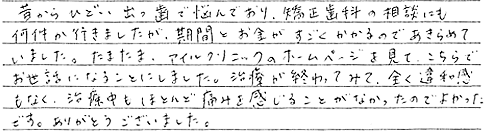 昔からひどい出っ歯で悩んでおり、矯正歯科の相談にも
何件か行きましたが、期間とお金がすごくかかるのであきらめて
いました。たまたま、アイルクリニックのホームページを見て、こちらで
お世話になることにしました。治療が終わってみて、全く違和感
もなく、治療中もほとんど痛みを感じることがなかったのでよかった
です。ありがとうございました。